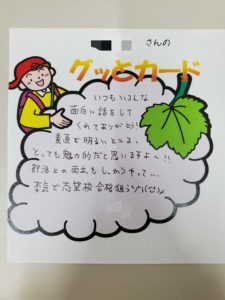 さんの
グッとカード
いつもいろんな
面白い話をして
くれてありがとう!
素直で明るいところ、
とっても魅力的だと思いますよ〜!!
部活との両立もしっかりやって…
本気で志望校合格狙うゾ!!